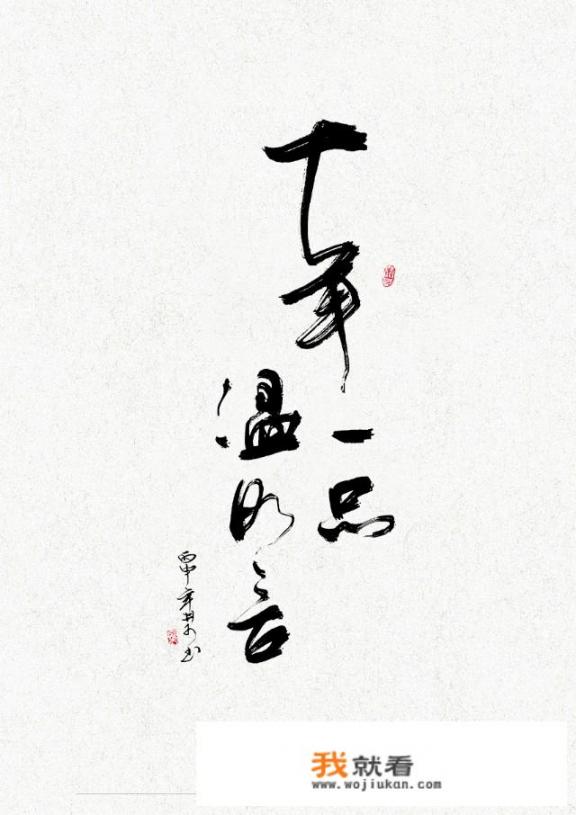 十年一品
温如言
丙申年 书
我就看
www.wojiukan.com